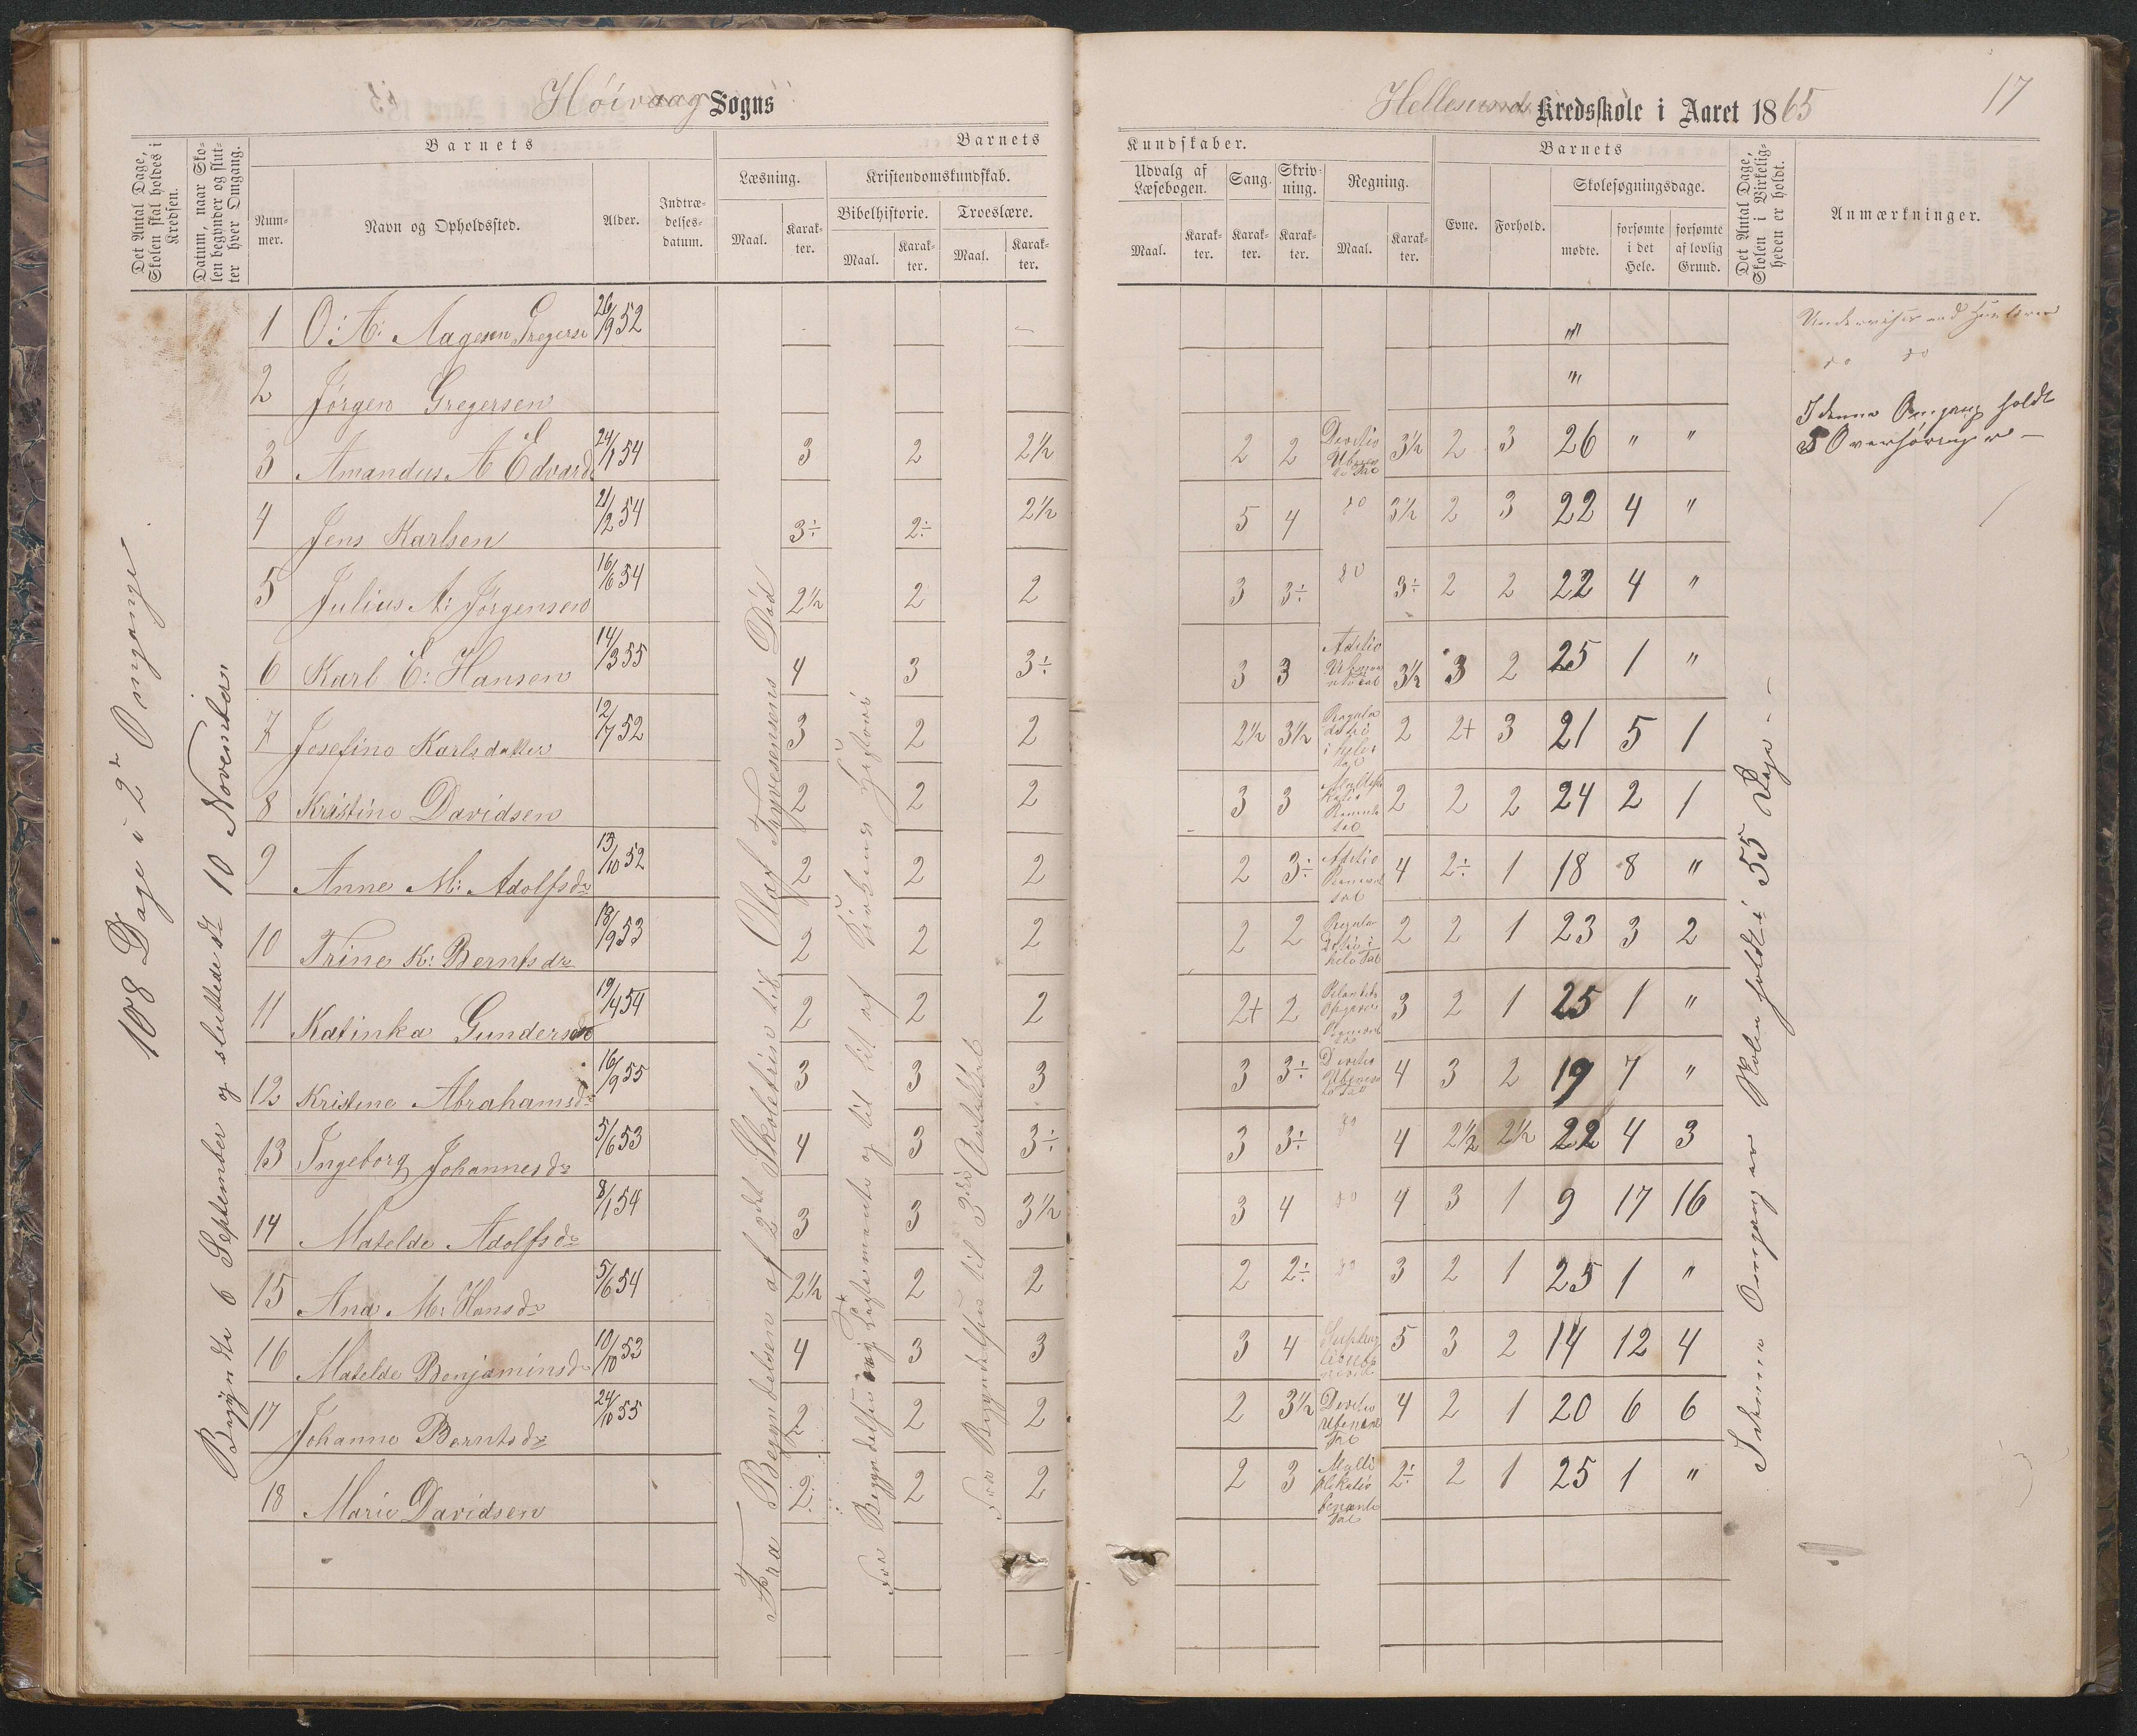 Høivaag Sogns
Hellesund Kredsskole i Aaret 1865
17
Det Antal Dage, Skolen skal holdes i Kredsen.
Datum, naar Skolen begynder og slutter hver Omgang.
Barnets
Nummer.
Navn og Opholdssted.
Alder.
Indtrædelsesdatum.
Barnets
Læsning.
Maal.
Karakter.
Kristendomskundskab.
Bibelhistorie.
Maal.
Karakter.
Troeslære.
Maal.
Karakter.
Kundskaber.
Udvalg af Læsebogen.
Maal.
Karakter.
Sang.
Karakter.
Skrivning.
Karakter.
Regning.
Maal.
Karakter.
Barnets
Evne.
Forhold.
Skolesøgningsdage.
mødte.
forsømte i det Hele.
forsømte af lovlig Grund.
Det Antal Dage, Skolen i Virkeligheden er holdt.
Anmærkninger.
108 Dage i 2 Omgange
Begyndte 6 September og sluttede d 10 November
Fra Begyndelsen af 2det Skoletrin til Olaf Tryvesensens Død
Fra Begyndelsen til 3die Artikel
I denne Omgang er Skolen holdt i 55 Dage
1 O: A: Aagesen Gregerse 26/9 52 "
2 Jørgen Gregersen "
do do
I denne Omgang holdt
5 Overhøringer
3 Amandus A Edvards 24/1 54 3 2 2½ 2 2 3½ 2 3 26 " "
4 Jens Karlsen 21/2 54 3÷ 2÷ 2½ 5 4 do 3½ 2 3 22 4 "
5 Julius A: Jørgensen 16/6 54 2½ 2 2 3 3÷ do 3÷ 2 2 22 4 "
6 Karl E: Hansen 14/3 55 4 3 3÷ 3 3 3½ 3 2 25 1 "
7 Josefine Karlsdatter 12/7 52 3 2 2 2½ 3½ 2 2+ 3 21 5 1
8 Kristine Davidsen 2 2 2 3 3 2 2 2 24 2 1
9 Anne M: Adolfsdr 13/10 52 2 2 2 2 3÷ 4 2÷ 1 18 8 "
10 Trine K: Berntsdr 18/9 53 2 2 2 2 2 2 2 1 23 3 2
11 Katinka Gundersdr 19/4 54 2 2 2 2+ 2 3 2 1 25 1 "
12 Kristine Abrahamsdr 16/9 55 3 3 3 3 3÷ 4 3 2 19 7 "
13 Ingeborg Johannesdr 5/6 53 4 3 3÷ 3 3÷ do 4 2½ 2½ 22 4 3
14 Matelde Adolfsdr 8/1 54 3 3 3½ 3 4 do 4 3 1 9 17 16
15 Ana M: Hansdr 5/6 54 2½ 2 2 2 2÷ do 3 2 1 25 1 "
16 Matelde Benjaminsdr 10/10 53 4 3 3 3 4 5 3 2 14 12 4
17 Johanne Berntsdr 24/10 55 2 2 2 2 3½ 4 2 1 20 6 6
18 Marie Davidsen 2 2 2 2 3 2÷ 2 1 25 1 "